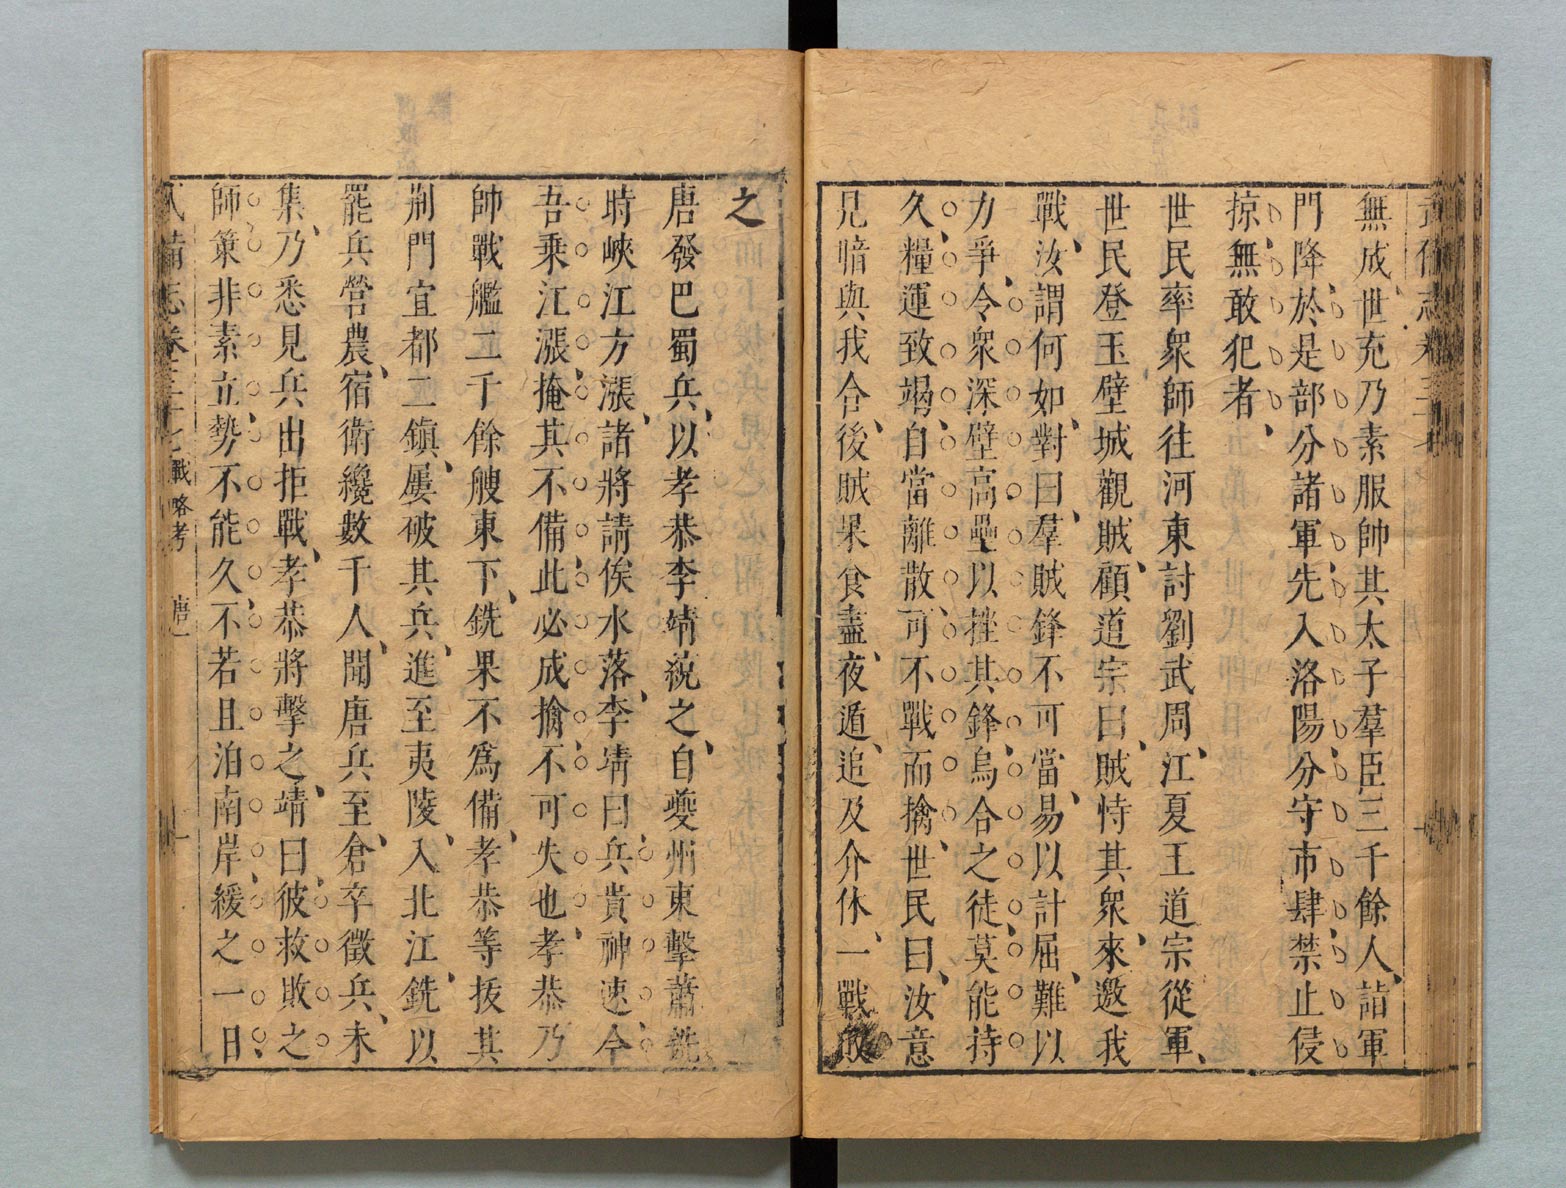 武備志卷三十七
無成世充乃素服帥其太子羣臣三千餘人詣軍
門降於是部分諸軍先入洛陽分守市肆禁止侵
掠無敢犯者
世民率衆師往河東討劉武周江夏王道宗從軍
世民登玉壁城觀賊顧道宗曰賊恃其衆來邀我
戰汝謂何如對曰羣賊鋒不可當易以計屈難以
力爭令衆深壁高壘以挫其鋒烏合之徒莫能持
久糧運致竭自當離散可不戰而擒世民曰汝意
見暗與我合後賊果食盡夜遁追及介休一戰敗
之
唐發巴蜀兵以孝恭李靖統之自夔州東擊蕭銑
時峽江方漲諸將請俟水落李靖曰兵貴神速今
吾乘江漲掩其不備此必成擒不可失也孝恭乃
帥戰艦二千餘艘東下銑果不爲備孝恭等拔其
荆門宜都二鎮屢破其兵進至夷陵入北江銑以
罷兵營農宿衛纔數千人聞唐兵至倉卒徵兵未
集乃悉見兵出拒戰孝恭將擊之靖曰彼救敗之
師策非素立勢不能久不若且泊南岸緩之一日
武備志卷三十七 戰略考 唐一